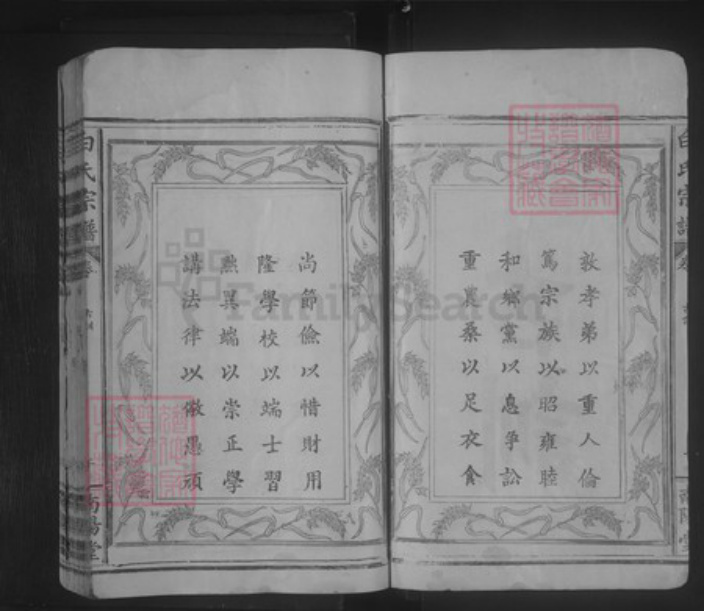 敦孝弟以重人倫
篤宗族以昭雍睦
和鄉黨以息爭訟
重農桑以足衣食
尚節儉以惜財用
隆學校以端士習
黜異端以崇正學
講法律以儆愚頑
白氏宗譜
卷
南陽堂
白氏宗譜
卷
南陽堂
FamilySearch